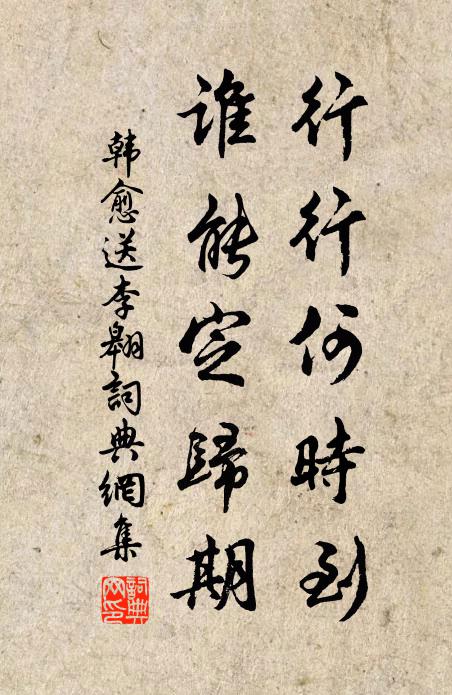 行行何時到
誰能定歸期
韓愈送李翱詞典網集
詞典
网印